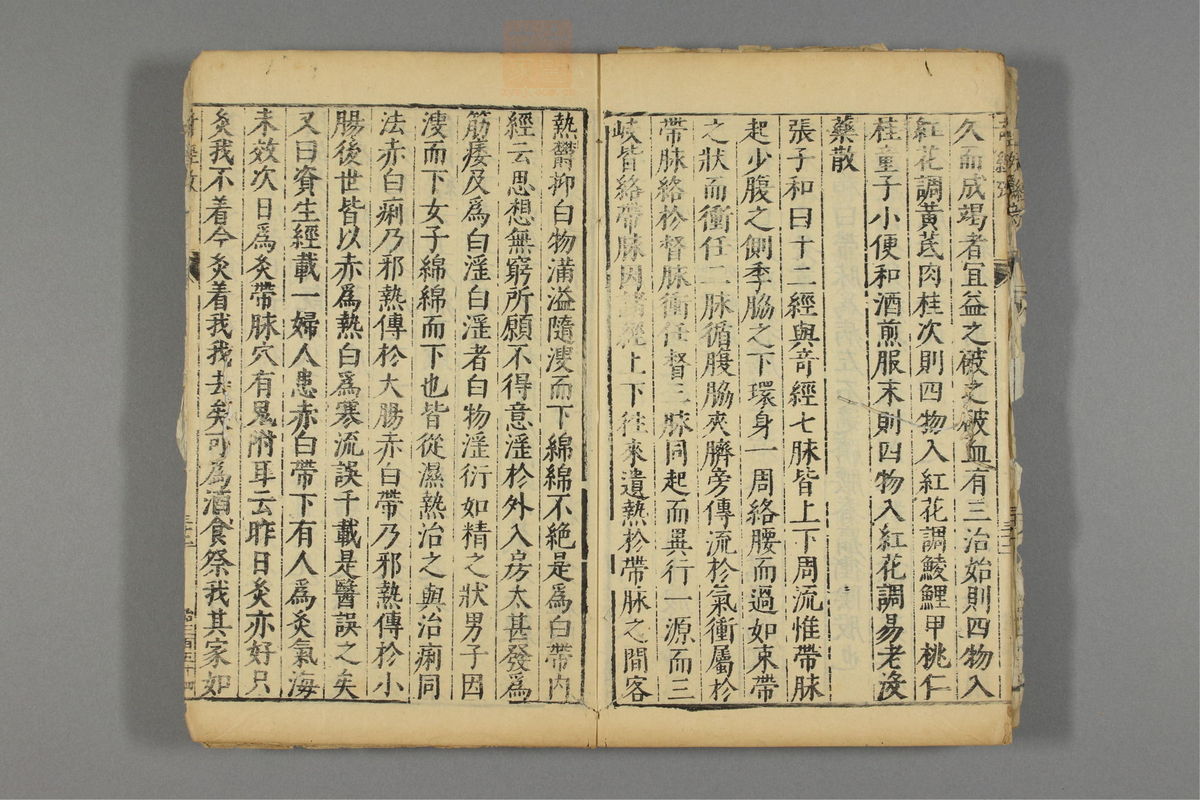 久而成竭者宜益之破之破血有三治始則四物入
紅花調黃芪肉桂次則四物入紅花調鯪鯉甲桃仁
桂童子小便和酒煎服末則四物入紅花調易老沒
藥散
張子和曰十二經與奇經七脉皆上下周流惟帶脉
起少腹之側季脇之下環身一周絡腰而過如束帶
之狀而衝任二脉循腹脇夾臍旁傳流於氣衝屬於
帶脉絡於督脉衝任督三脉同起而異行一源而三
岐皆絡帶脉因諸經上下往來遺熱於帶脉之間客
熱欝抑白物滿溢隨溲而下綿綿不絕是爲白帶內
經云思想無窮所願不得意淫於外入房太甚發爲
筋痿及爲白淫白淫者白物淫衍如精之狀男子因
溲而下女子綿綿而下也皆從濕熱治之與治痢同
法赤白痢乃邪熱傳於大腸赤白帶乃邪熱傳於小
腸後世皆以赤爲熱白爲寒流誤千載是醫誤之矣
又曰資生經載一婦人患赤白帶下有人爲灸氣海
未效次日爲灸帶脉穴有鬼附耳云昨日灸亦好只
灸我不着今灸着我我去矣可爲酒食祭我其家如